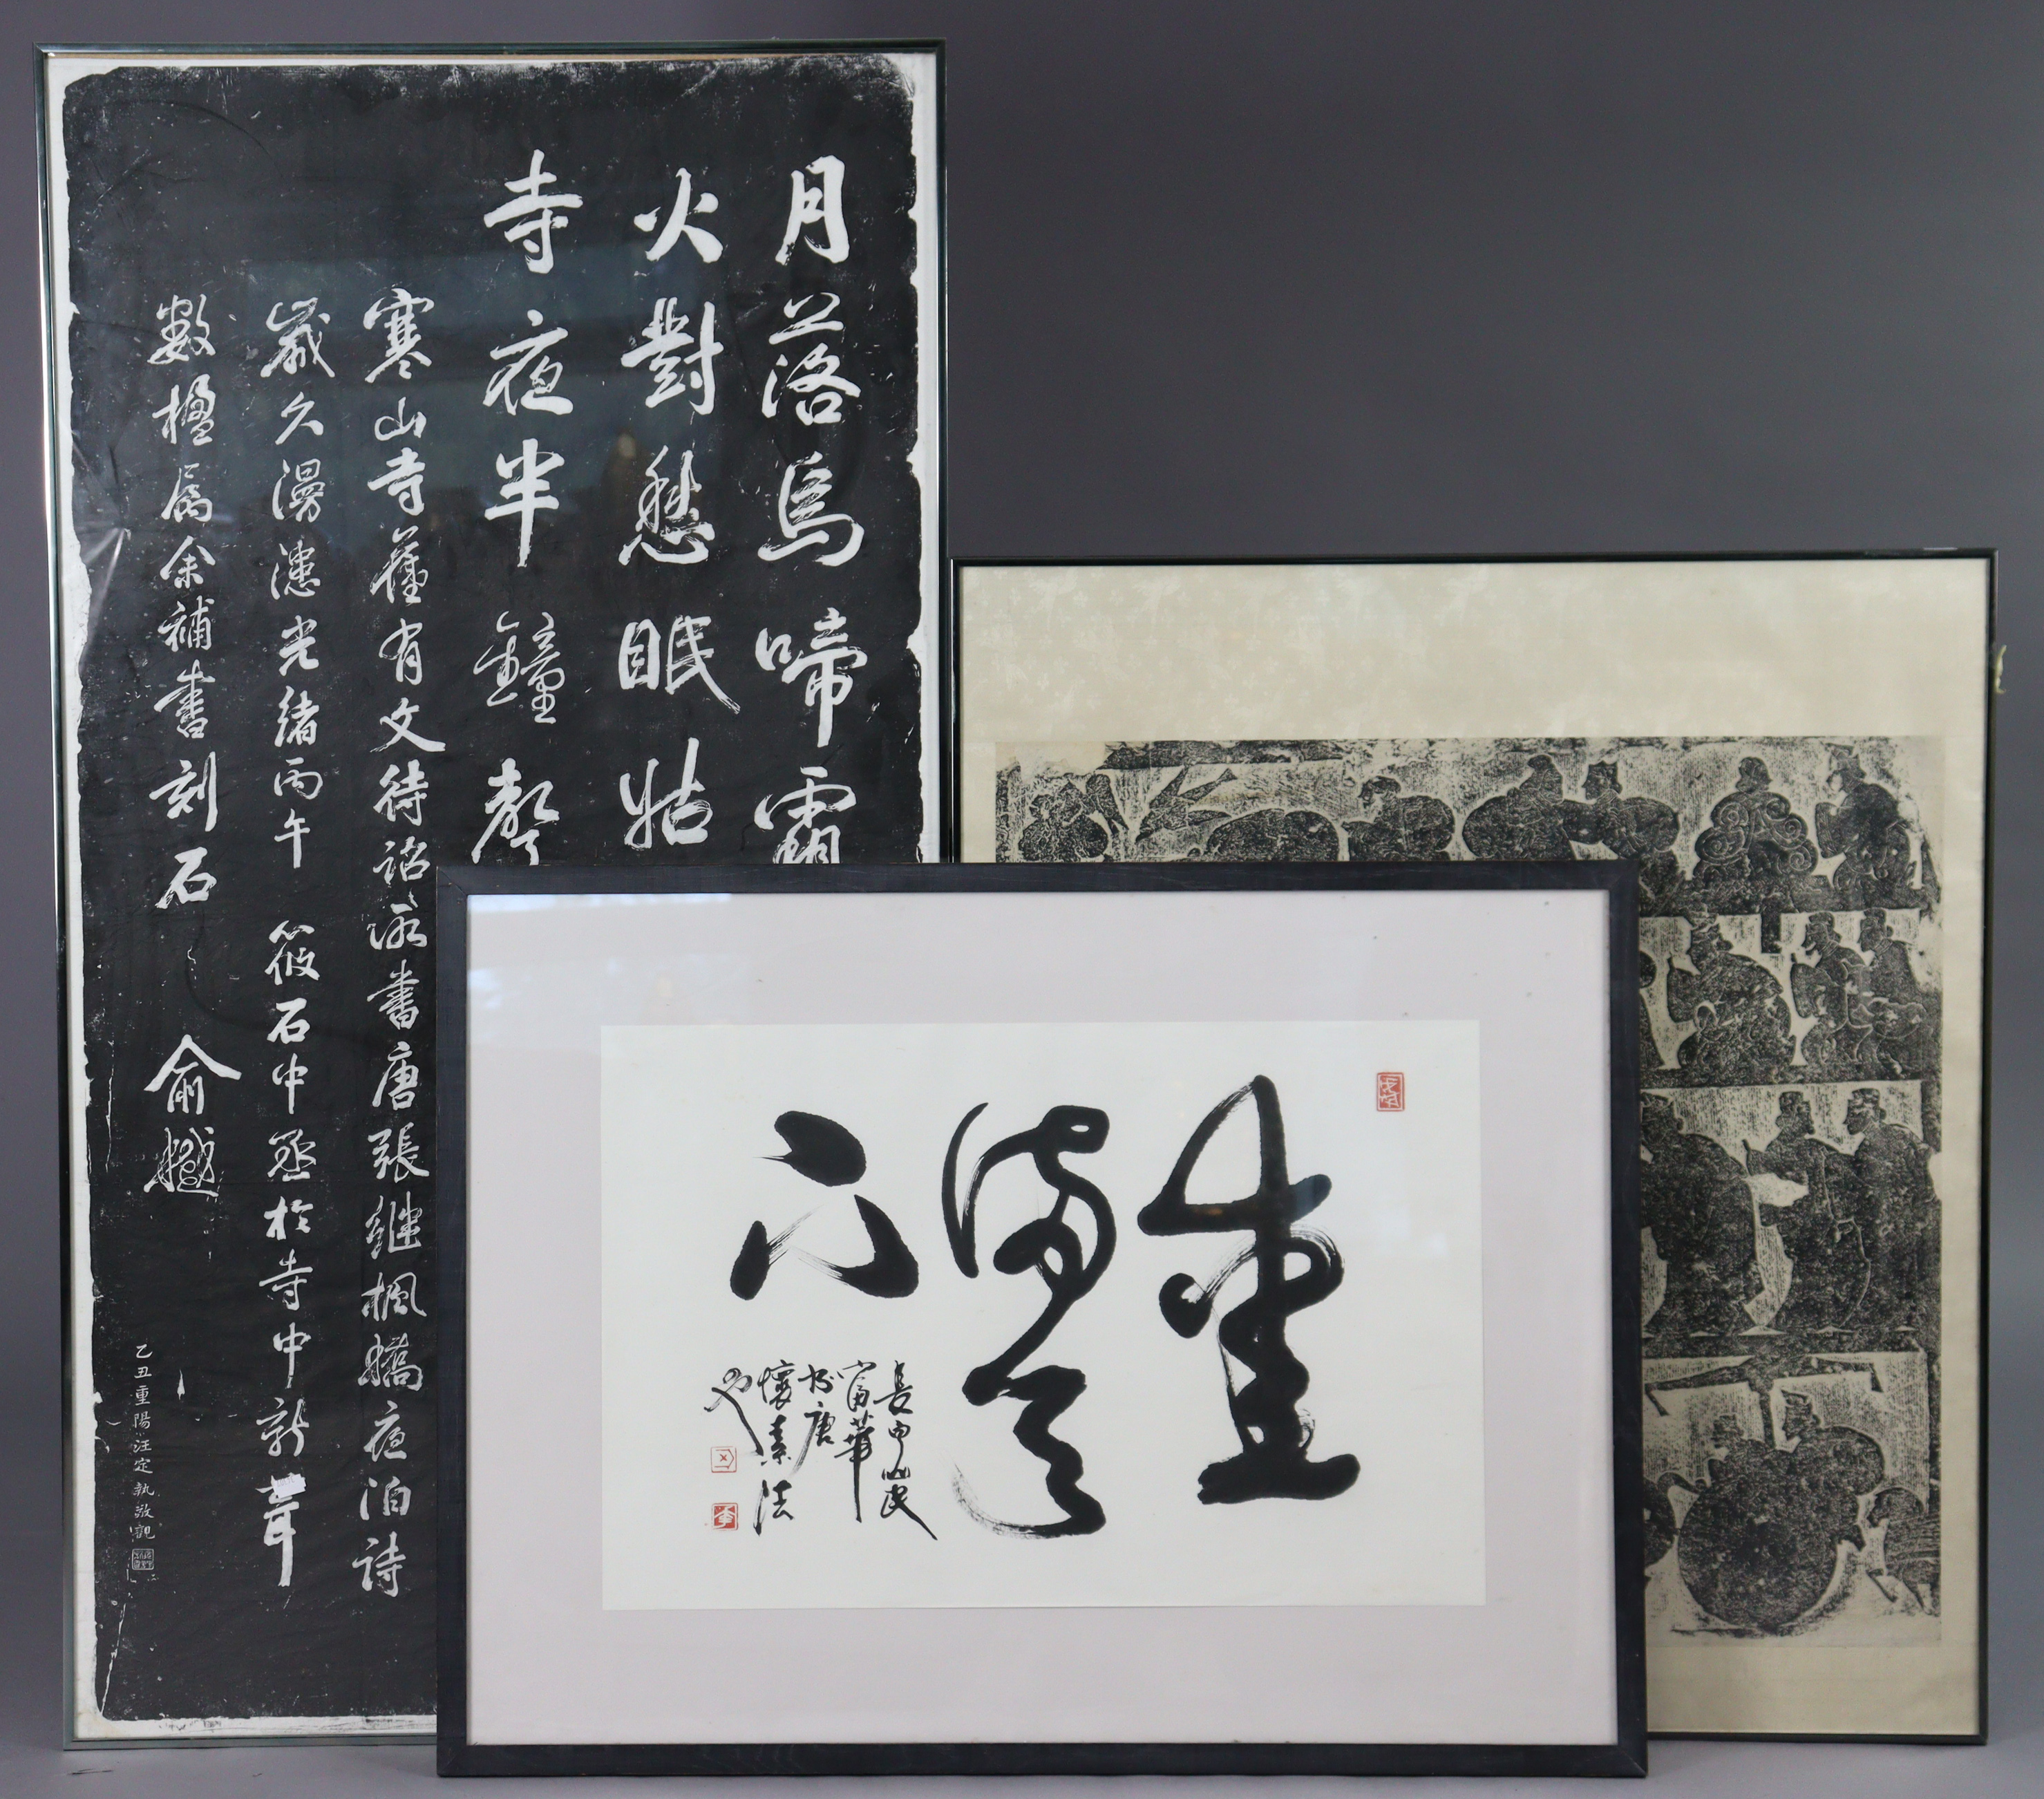 月落烏啼霜
火對愁眠姑
寺夜半鐘聲
寒山寺舊有文待詔所書唐張繼楓橋夜泊詩
歲久漫漶光緒丙午 筱石中丞於寺中新葺
數楹屬余補書刻石 俞樾
乙丑重陽汪定執敬觀
長
富華
書唐
懷素法